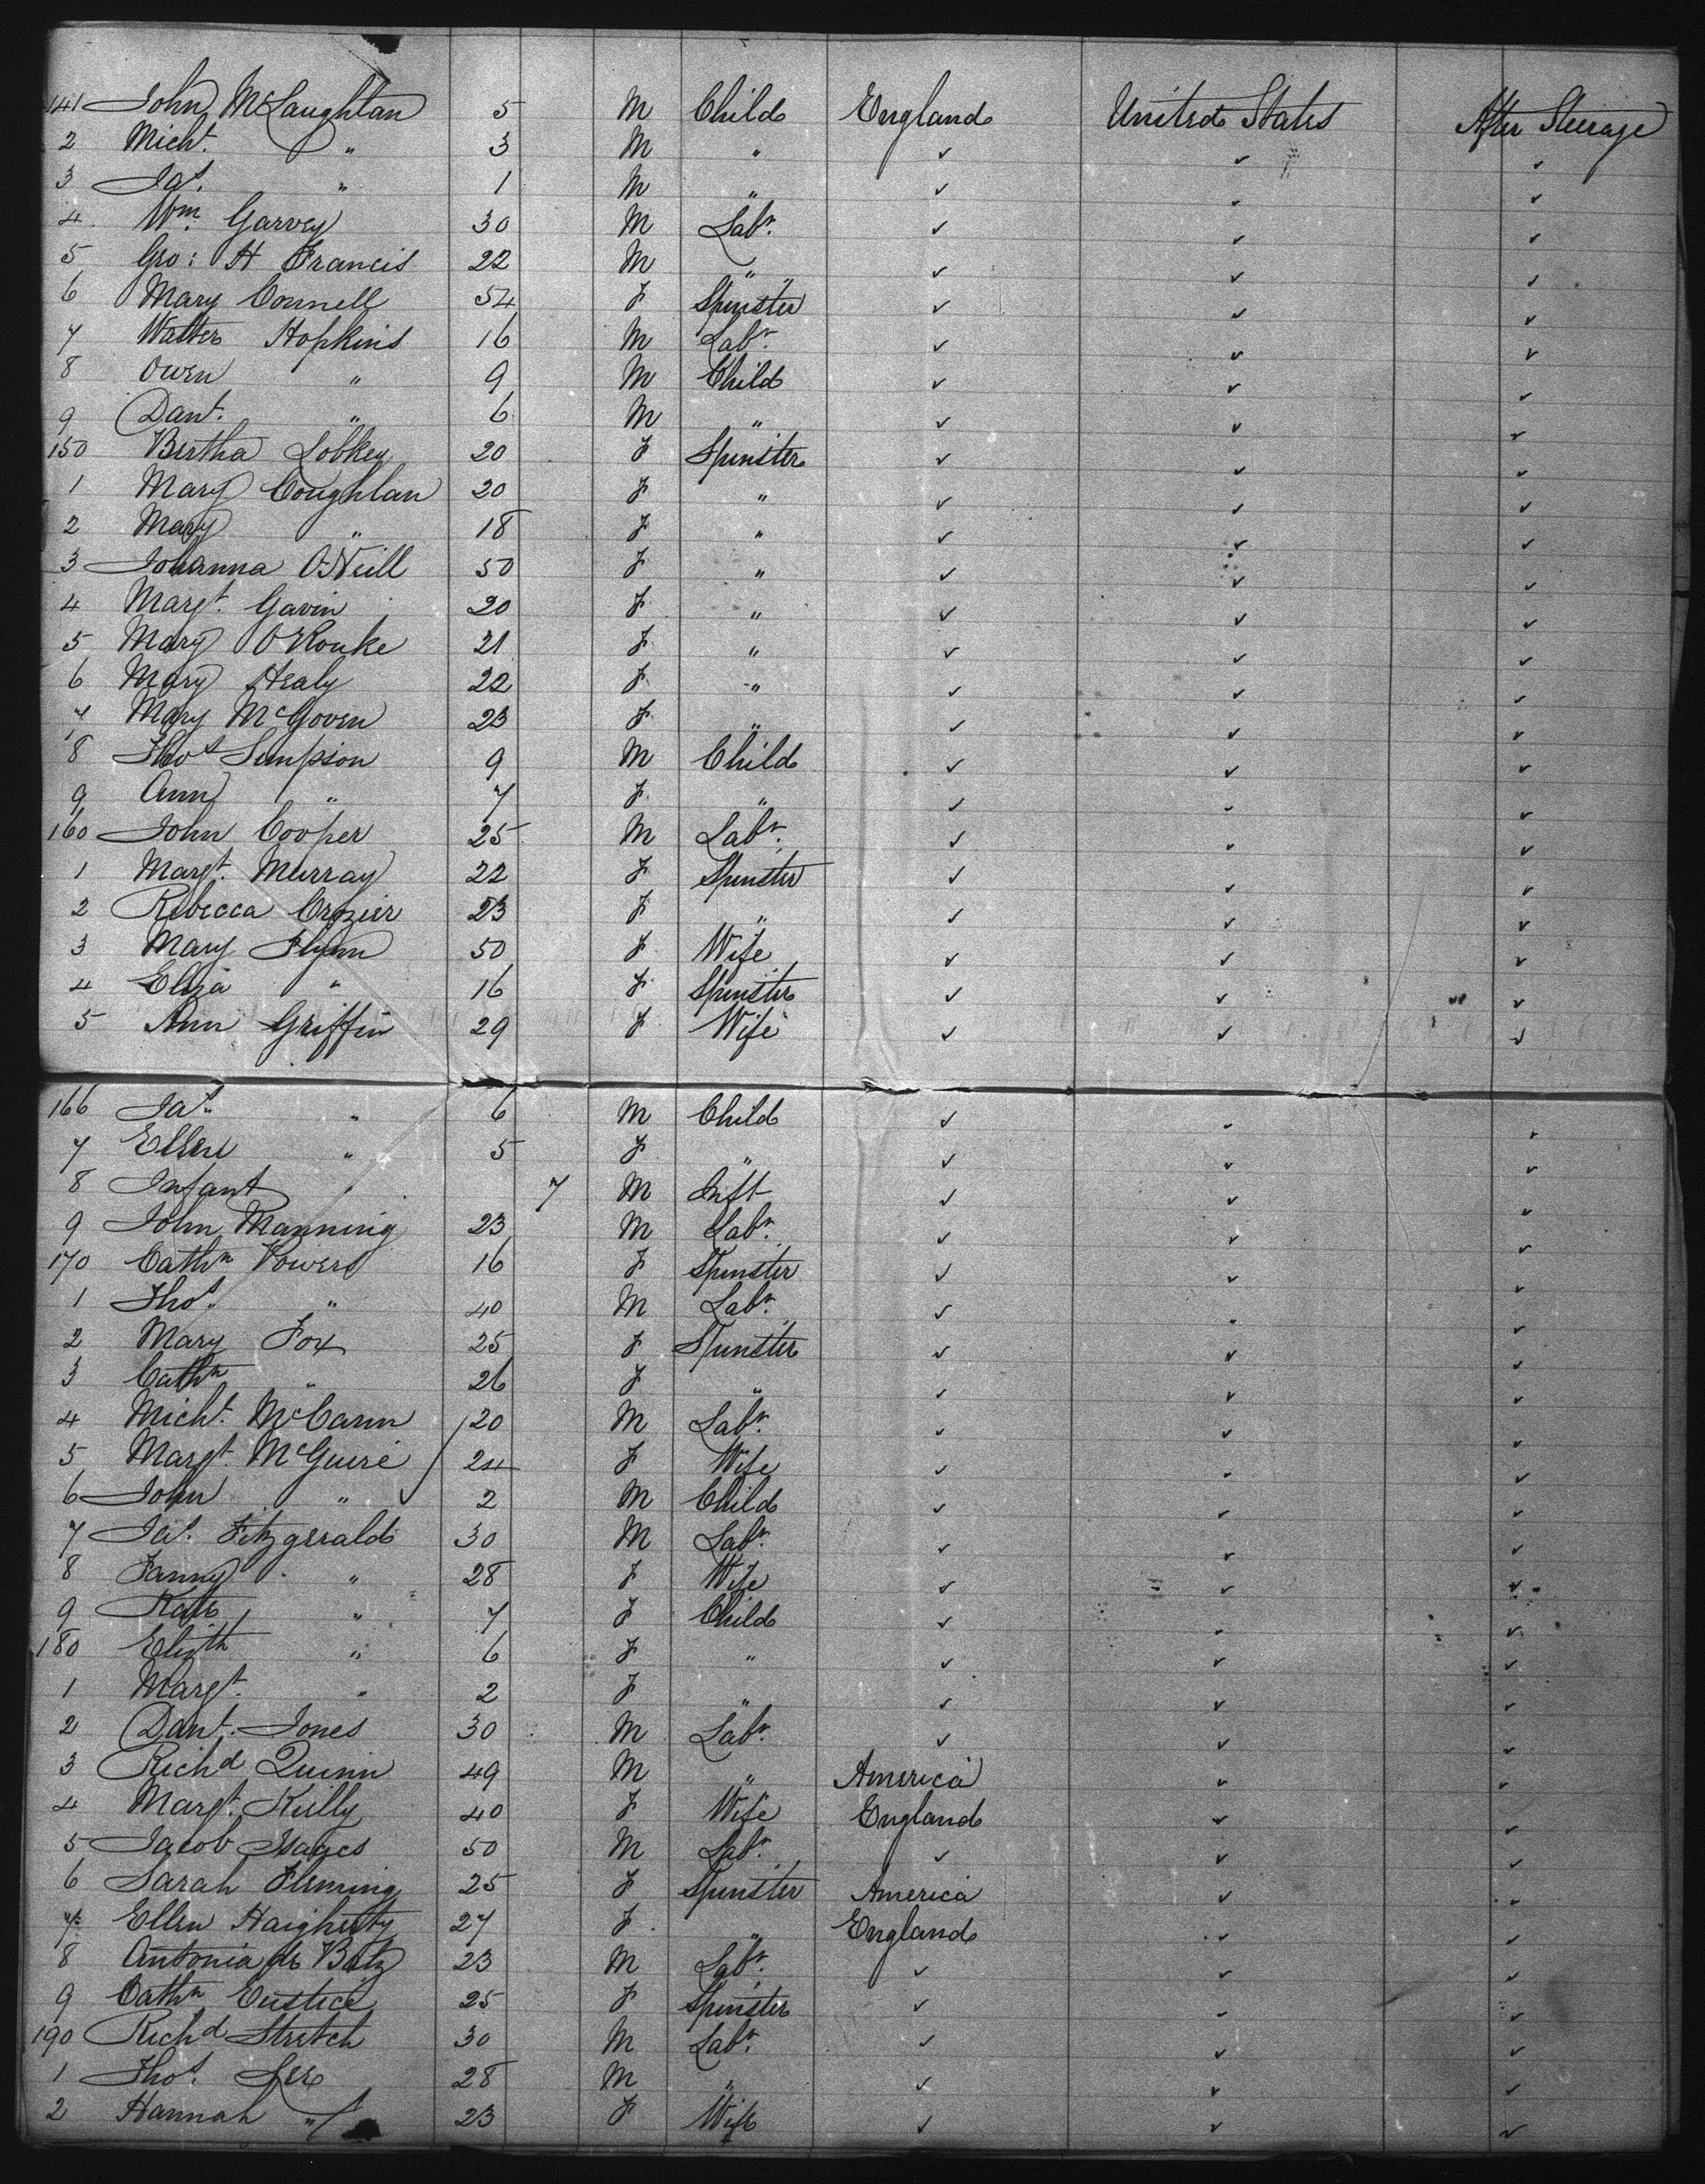 141 John McLaughlan 5 M Child England United States After Steerage
2 Micht. " 3 M " ✓ ✓ ✓
3 Jas. " 1 M " ✓ ✓ ✓
4 Wm. Garvey 30 M Labr. ✓ ✓ ✓
5 Geo: H Francis 22 M " ✓ ✓ ✓
6 Mary Connell 54 F Spinster ✓ ✓ ✓
7 Walter Hopkins 16 M Labr. ✓ ✓ ✓
8 Owen " 9 M Child ✓ ✓ ✓
9 Danl. " 6 M " ✓ ✓ ✓
150 Bertha Lobkey 20 F Spinster ✓ ✓ ✓
1 Mary Coughlan 20 F " ✓ ✓ ✓
2 Mary " 18 F " ✓ ✓ ✓
3 Johanna O'Neill 50 F " ✓ ✓ ✓
4 Margt. Gavin 20 F " ✓ ✓ ✓
5 Mary O'Rouke 21 F " ✓ ✓ ✓
6 Mary Healy 22 F " ✓ ✓ ✓
7 Mary McGoven 23 F " ✓ ✓ ✓
8 Thos Simpson 9 M Child ✓ ✓ ✓
9 Ann " 7 F " ✓ ✓ ✓
160 John Cooper 25 M Labr. ✓ ✓ ✓
1 Margt. Murray 22 F Spinster ✓ ✓ ✓
2 Rebecca Crozier 23 F " ✓ ✓ ✓
3 Mary Flynn 50 F Wife ✓ ✓ ✓
4 Eliza " 16 F Spinster ✓ ✓ ✓
5 Ann Griffin 29 F Wife ✓ ✓ ✓
166 Jas. " 6 M Child ✓ ✓ ✓
7 Ellen " 5 F " ✓ ✓ ✓
8 Infant 7 M Inft ✓ ✓ ✓
9 John Manning 23 M Labr. ✓ ✓ ✓
170 Cathn Powers 16 F Spinster ✓ ✓ ✓
1 Thos. " 40 M Labr. ✓ ✓ ✓
2 Mary Fox 25 F Spinster ✓ ✓ ✓
3 Cathn " 26 F " ✓ ✓ ✓
4 Micht. McCann 20 M Labr. ✓ ✓ ✓
5 Margt. McGuire 24 F Wife ✓ ✓ ✓
6 John " 2 M Child ✓ ✓ ✓
7 Jas. Fitzgerald 30 M Labr. ✓ ✓ ✓
8 Fanny " 28 F Wife ✓ ✓ ✓
9 Kate " 7 F Child ✓ ✓ ✓
180 Elizth " 6 F " ✓ ✓ ✓
1 Margt. " 2 F " ✓ ✓ ✓
2 Danl. Jones 30 M Labr. ✓ ✓ ✓
3 Richd Quinn 49 M " America ✓ ✓
4 Margt. Kielly 40 F Wife England ✓ ✓
5 Jacob Isaacs 50 M Labr. ✓ ✓ ✓
6 Sarah Fleming 25 F Spinster America ✓ ✓
7 Ellen Haigherty 27 F " England ✓ ✓
8 Antonia de Batz 23 M Labr. ✓ ✓ ✓
9 Cathn Eustice 25 F Spinster ✓ ✓ ✓
190 Richd Stretch 30 M Labr. ✓ ✓ ✓
1 Thos. Lee 28 M " ✓ ✓ ✓
2 Hannah " 23 F Wife ✓ ✓ ✓